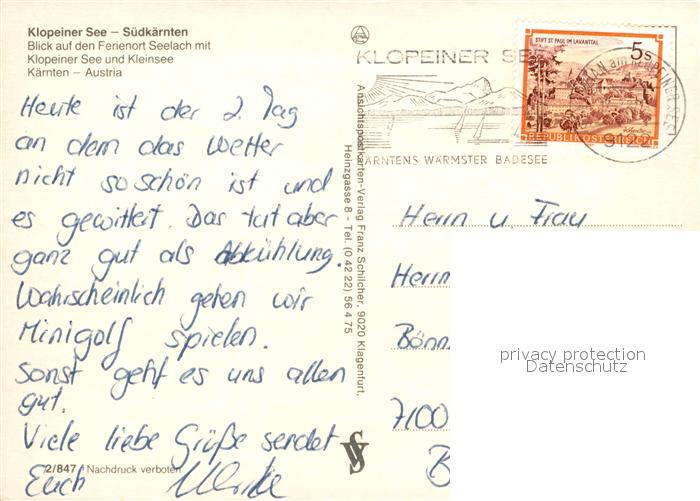 Klopeiner See – Südkärnten
Blick auf den Ferienort Seelach mit
Klopeiner See und Kleinsee
Kärnten – Austria
Heute ist der 2. Tag
an dem das Wetter
nicht so schön ist und
es gewittert. Das tut aber
ganz gut als Abkühlung.
Wahrscheinlich gehen wir
Minigolf spielen.
Sonst geht es uns allen
gut.
Viele liebe Grüße sendet
Euch Ulrike
2/847 Nachdruck verboten
Ansichtspostkarten-Verlag Franz Schilcher, 9020 Klagenfurt,
Heinzgasse 8 - Tel. (0 42 22) 56 4 75
KLOPEINER SEE
KÄRNTENS WÄRMSTER BADESEE
STIFT ST. PAUL IM LAVANTTAL
5s
REPUBLIK ÖSTERREICH
KLOPEINER SEE
Herrn u. Frau
Herrm
Bönn
7100
privacy protection
Datenschutz